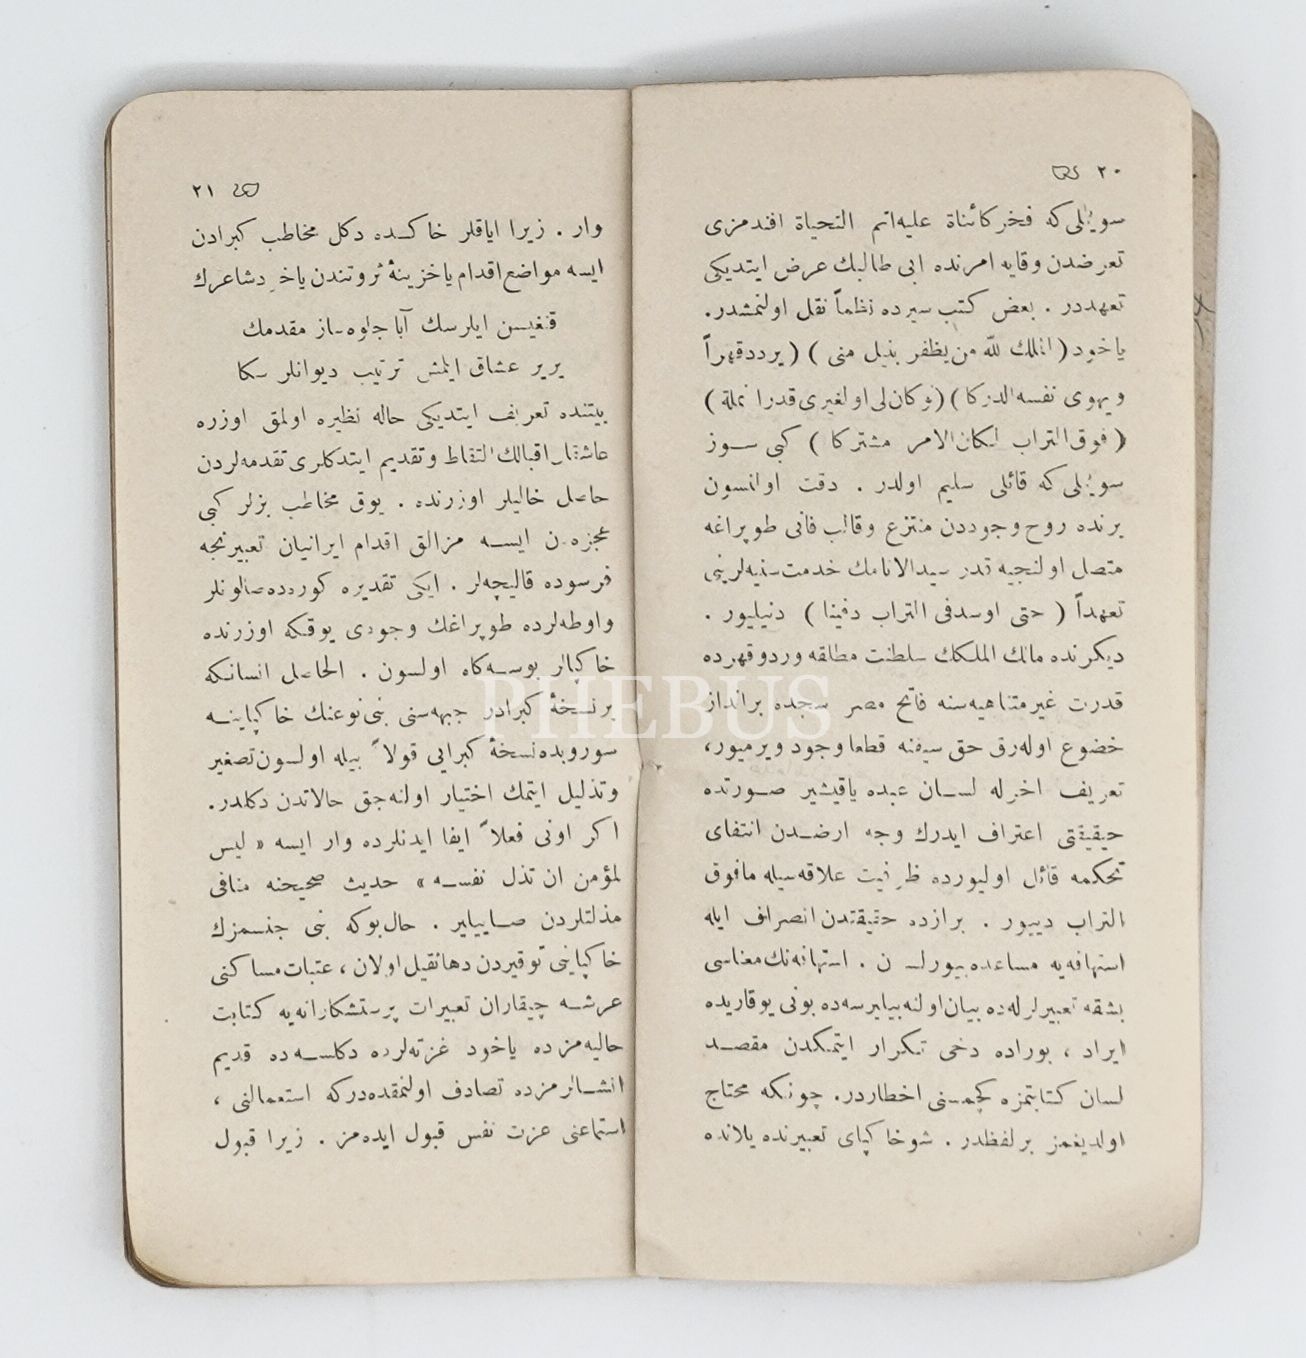 ٢٠
سويلى كه فخر كائناة عليه اتم التحياة افندمزى
تعرضدن وقايه امرنده ابى طالبك عرض ايتديكى
تعهددر . بعض كتب سيرده نظماً نقل اولنمشدر.
ياخود ( الملك لله من يظفر بنيل منى ) ( يردد قهراً
ويهوى نفسه الدركا ) ( لو كان لى او لغيرى قدر انملة )
( فوق التراب لكان الامر مشتركا ) كبى سوز
سويلى كه قائلى سليم اولدر . دقت اولنسون
برنده روح وجوددن منتزع وقالب فانى طوپراغه
متصل اولنجيه قدر سيدالانامك خدمت سنيه لرينى
تعهداً ( حتى اوسد فى التراب دفينا ) دنيليور .
ديكرنده مالك الملكك سلطنت مطلقه ورد و قهرده
قدرت غير متناهيه سنه فاتح مصر سجده برانداز
خضوع اوله رق حق سيفنه قطعا وجود ويرميور،
تعريف اخرله لسان عبده ياقيشير صورتده
حقيقتى اعتراف ايدرك وجه ارضدن انتفاى
تحكمه قائل اوليورده ظرفيت علاقه سيله مافوق
التراب دييور . برازده حقيقتدن انصراف ايله
استهافه يه مساعده بيورلسـ ن . استهافه نك معناسى
بشقه تعبيرلرله ده بيان اولنه بيليرسه ده بونى يوقاريده
ايراد ، بوراده دخى تكرار ايتمكدن مقصد
لسان كتابتمزه كچمسنى اخطاردر. چونكه محتاج
اولديغمز برلفظدر . شو خاكپاى تعبيرنده يلانده
٢١
وار . زيرا اياقلر خاكـده دكل مخاطب كبرادن
ايسه مواضع اقدام يا خزينهٔ ثروتندن ياخود شاعرك
قنغيسن ايلرسك آيا جلوه ساز مقدمك
يرير عشاق ايلمش ترتيب ديوانلر سكا
بيتنده تعريف ايتديكى حاله نظيره اولمق اوزره
عاشقان اقبالك التقاط وتقديم ايتدكلرى تقدمه لردن
حاصل خاليلر اوزرنده . يوق مخاطب بزلر كبى
عجزه دن ايسه مزالق اقدام ايرانيان تعبيرنجه
فرسوده قاليچه لر . ايكى تقديره كوره ده صالونلر
واوطه لرده طوپراغك وجودى يوقكه اوزرنده
خاكپالر بوسـه كاه اولسون . الحاصل انسانكه
برنسخهٔ كبرادر جبهه سنى بنى نوعنك خاكپاينـه
سوروبده نسخهٔ كبرايى قولاً بيله اولسون تصغير
وتذليل ايتمك اختيار اولنه جق حالاتدن دكلدر.
اكر اونى فعلاً ايفا ايدنلرده وار ايسه « ليس
لمؤمن ان تذل نفسـه » حديث صحيحنه منافى
مذلتلردن صـاييلير . حال بوكه بنى جنسمزك
خاكپاينى توقيردن دها ثقيل اولان ، عتبات مساكنى
عرشـه چيقاران تعبيرات پرستشكارانه يه كتابت
حاليه مزده ياخود غزته لرده دكلسه ده قديم
انشـالرمزده تصادف اولنمقده دركه استعمالنى ،
استماعنى عزت نفس قبول ايده مز . زيرا قبول
PHEBUS